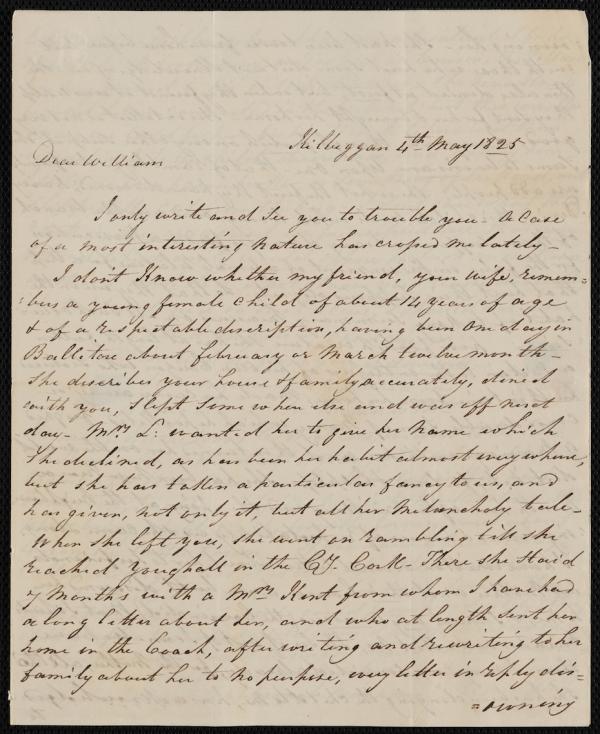 Kilbeggan 4th May 1825
Dear William
I only write and see you to trouble you - A case
of a most interesting nature has crossed me lately -
I don't Know whether my friend, your wife, remem=
:bers a young female child of about 14 years of age
& of a respectable discription, having been one day in
Ballitore about february or March twelve month -
She discribes your house & family accurately, dined
with you, slept some where else and was off next
day - Mrs L: wanted her to give her name which
She declined, as has been her habit almost everywhere,
but she has taken a particular fancy to us, and
has given, not only it, but all her Melancholy tale -
When she left you, she went on rambling till she
reached Youghall in the Cy. Cork - There she staid
7 Months with a Mrs Kent from whom I have had
a long letter about her, and who at length sent her
home in the Coach, after writing and rewriting to her
family about her to no purpose, every letter in reply dis=
=owning